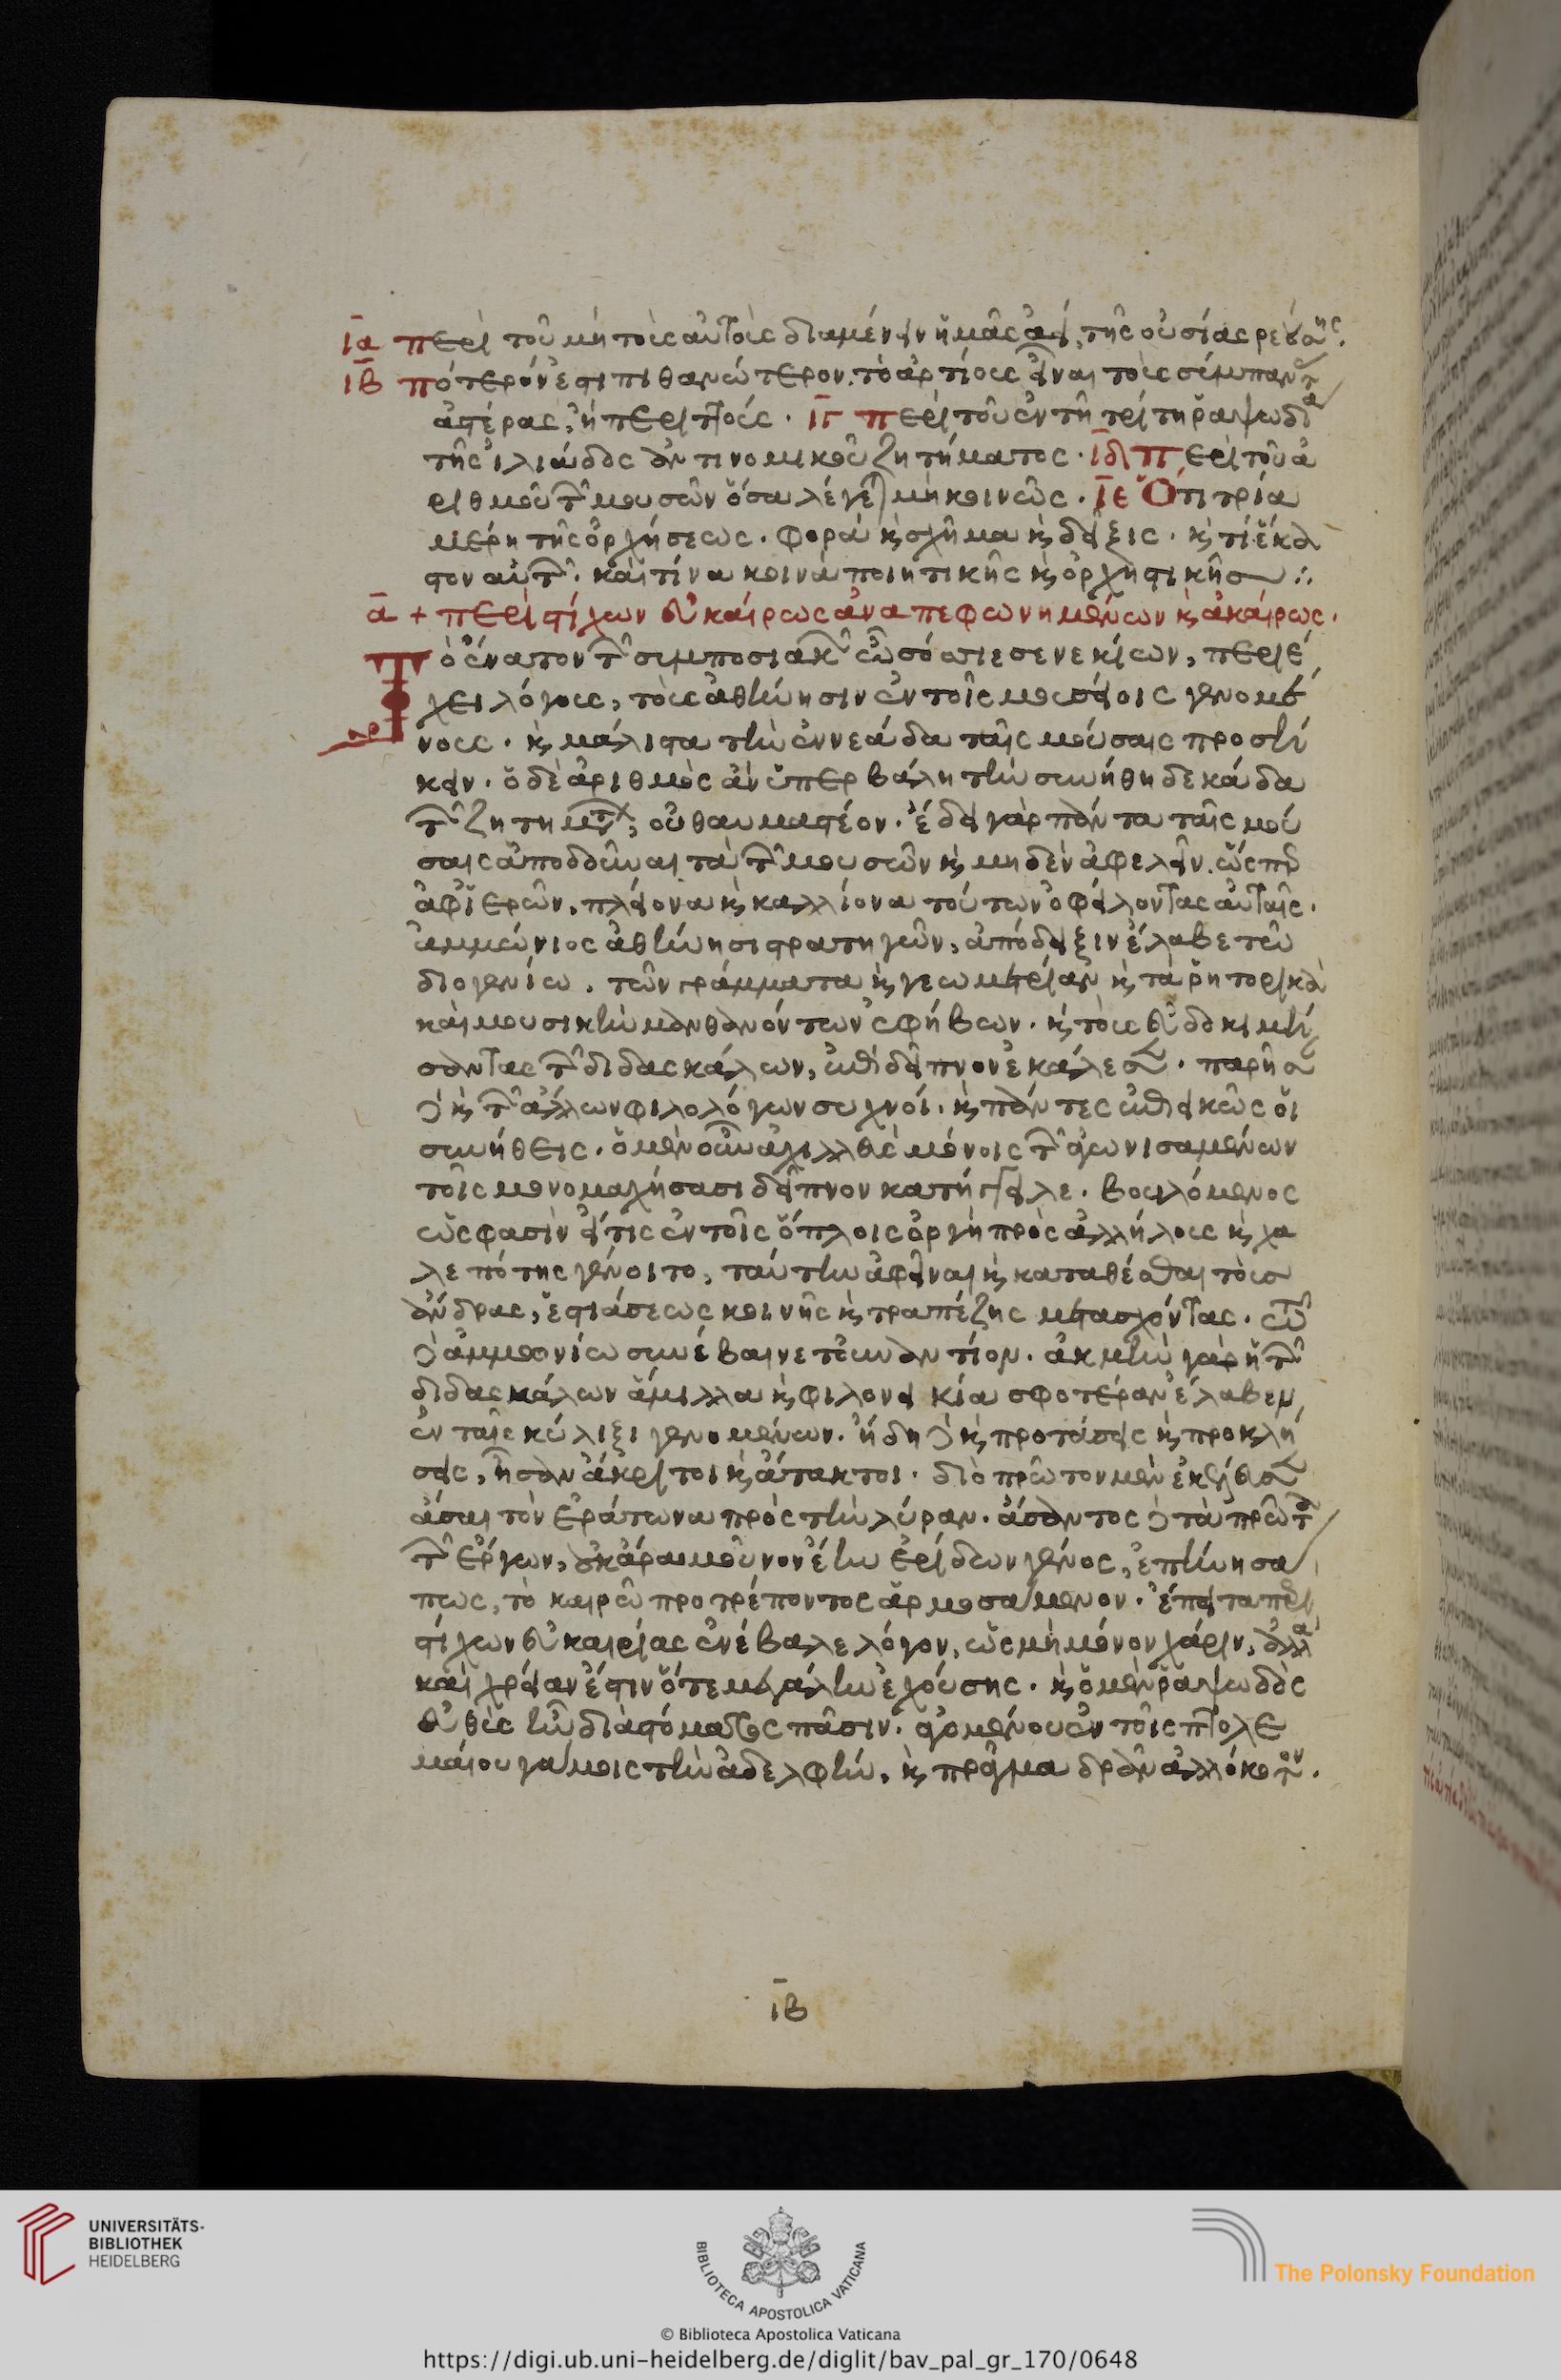 ια περὶ τοῦ μὴ τοὺς αὐτοὺς διαμένειν ἡμᾶς ἀεί, τῆς οὐσίας ρεούσης.
ιβ πότερόν ἐστι πιθανώτερον. τὸ ἀρτίους εἶναι τοὺς σύμπαντας
ἀστέρας, ἢ περιττούς. ιγ περὶ τοῦ ἐν τῇ τρίτῃ ῥαψωδία
τῆς ἰλιάδος ἀντινομικοῦ ζητήματος. ιδ περὶ τοῦ ἀ
ριθμοῦ τῶν μουσῶν ὅσα λέγεται μὴ κοινῶς. ιε Ὅτι τρία
μέρη τῆς ὀρχήσεως. φορὰ καὶ σχῆμα καὶ δεῖξις. καὶ τί ἕκα
στον αὐτῶν. καὶ τίνα κοινὰ ποιητικῆς καὶ ὀρχηστικῆς ∴
α + περὶ στίχων εὐκαίρως ἀναπεφωνημένων καὶ ἀκαίρως.
Τὸ ἔνατον τῶν συμποσιακῶν ὦ σόσσιε σενεκίων, περιέ
χει λόγους, τοὺς ἀθήνησιν ἐν τοῖς μουσείοις γενομέ
νους. καὶ μάλιστα τὴν ἐννεάδα ταῖς μούσαις προσή
κειν. ὁ δὲ ἀριθμὸς ἂν ὑπερβάλη τὴν συνήθη δεκάδα
τῶν ζητημάτων, οὐ θαυμαστέον. ἔδει γὰρ πάντα ταῖς μού
σαις ἀποδοῦναι τὰ τῶν μουσῶν καὶ μηδὲν ἀφελεῖν. ὥσπερ
ἀφ' ἱερῶν, πλείονα καὶ καλλίονα τούτων ὀφείλοντας αὐταῖς.
ἀμμώνιος ἀθήνησι στρατηγῶν, ἀπόδειξιν ἔλαβε τῶ
διογενίω. τῶν γράμματα καὶ γεωμετρίαν καὶ τὰ ῥητορικὰ
καὶ μουσικὴν μανθανόντων ἐφήβων. καὶ τοὺς εὐδοκιμή
σαντας τῶν διδασκάλων, ἐπὶ δεῖπνον ἐκάλεσεν. παρῆσαν
δὲ καὶ τῶν ἄλλων φιλολόγων συχνοί. καὶ πάντες ἐπιεικῶς οἱ
συνήθεις. ὁ μὲν οὖν ἀχιλλεὺς μόνοις τῶν ἀγωνισαμένων
τοῖς μονομαχήσασι δεῖπνον κατήγγειλε. βουλόμενος
ὥς φασὶν εἴ τις ἐν τοῖς ὅπλοις ὀργὴ πρὸς ἀλλήλους καὶ χα
λεπότης γένοιτο, ταύτην ἀφεῖναι καὶ καταθέσθαι τοὺς
ἄνδρας, ἑστιάσεως κοινῆς καὶ τραπέζης μετασχόντας. τῶ
δὲ ἀμμωνίω συνέβαινε τοὐναντίον. ἀκμὴν γὰρ ἡ τῶν
διδασκάλων ἅμιλλα καὶ φιλονεικία σφοτέραν ἔλαβεν
ἐν ταῖς κύλιξι γενομένων. ἤδη δὲ καὶ προτάσεις καὶ προκλή
σεις, ἦσαν ἄκριτοι καὶ ἄτακτοι. διὸ πρῶτον μὲν ἐκέλευσεν
ἆσαι τὸν ἐράτωνα πρὸς τὴν λύραν. ἄσαντος δὲ τὰ πρῶτα
τῶν ἔργων, οὐκ ἄρα μοῦνον ἔην ἐρίδων γένος, ἐπήνησα
πως, τὸ καιρῶ προτρέποντος ἁρμοσάμενον. ἔπειτα περὶ
στίχων εὐκαιρίας ἐνέβαλε λόγον, ὡς μὴ μόνον χάριν, ἀλλὰ
καὶ χρείαν ἔστιν ὅτε μεγάλην ἐχούσης. καὶ ὁ μὲν ῥαψωδὸς
εὐθὺς ἦν διὰ στόματος πᾶσιν. ἀρομένου ἐν τοῖς πτολε
μαίου γάμοις τὴν ἀδελφήν, καὶ πρᾶγμα δρᾶν ἀλλόκοτον.
ιβ
UNIVERSITÄTS-
BIBLIOTHEK
HEIDELBERG
BIBLIOTECA APOSTOLICA VATICANA
The Polonsky Foundation
© Biblioteca Apostolica Vaticana
https://digi.ub.uni-heidelberg.de/diglit/bav_pal_gr_170/0648